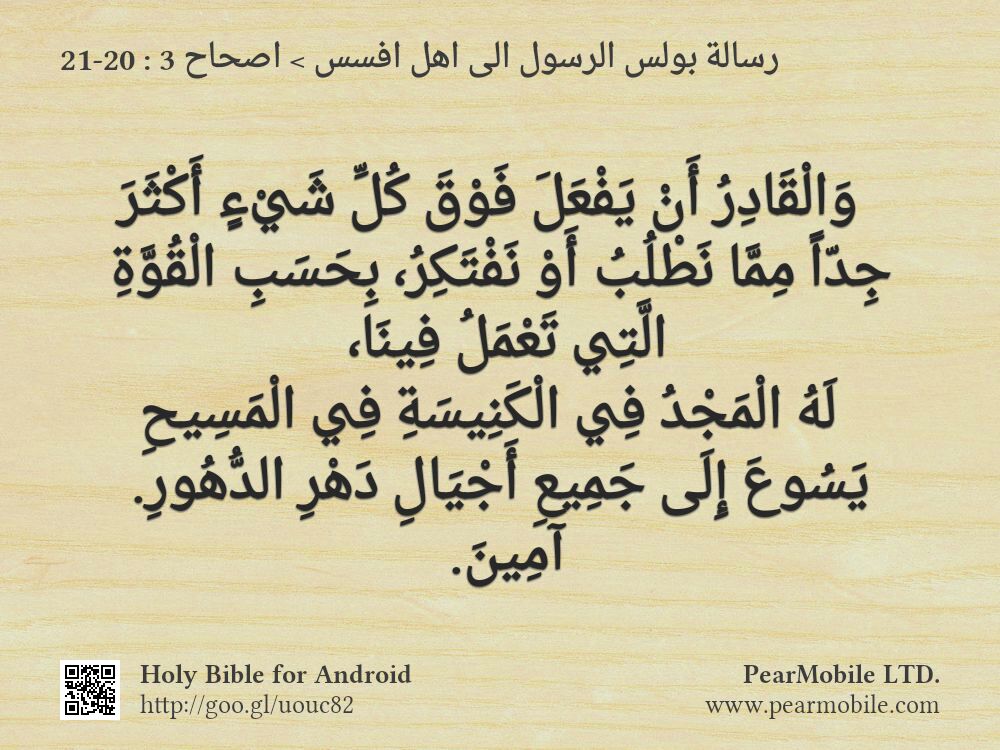 رسالة بولس الرسول الى اهل افسس > اصحاح 3 : 20-21
وَالْقَادِرُ أَنْ يَفْعَلَ فَوْقَ كُلِّ شَيْءٍ أَكْثَرَ
جِدّاً مِمَّا نَطْلُبُ أَوْ نَفْتَكِرُ، بِحَسَبِ الْقُوَّةِ
الَّتِي تَعْمَلُ فِينَا،
لَهُ الْمَجْدُ فِي الْكَنِيسَةِ فِي الْمَسِيحِ
يَسُوعَ إِلَى جَمِيعِ أَجْيَالِ دَهْرِ الدُّهُورِ.
آمِينَ.
Holy Bible for Android
http://goo.gl/uouc82
PearMobile LTD.
www.pearmobile.com